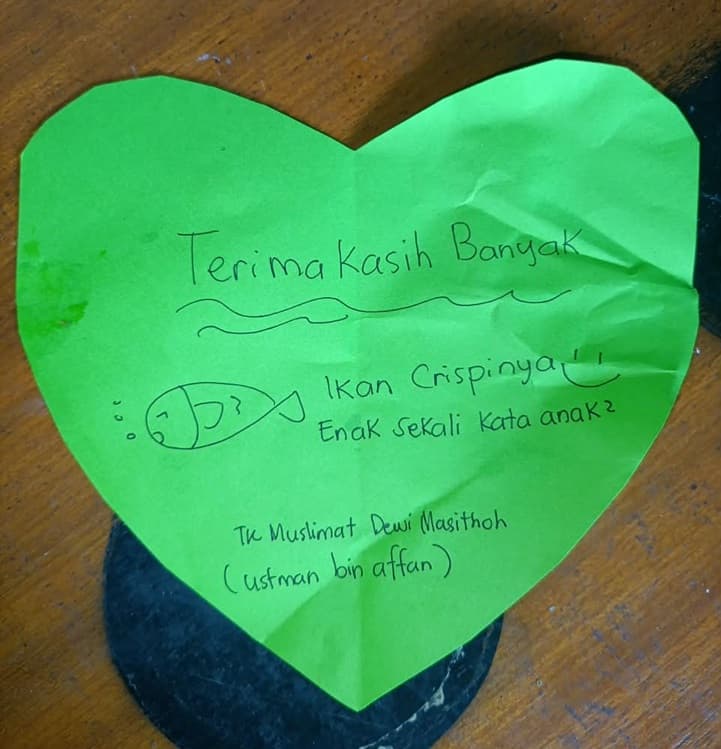 Terima Kasih Banyak
Ikan Crispinya
Enak Sekali Kata anak2
TK Muslimat Dewi Masithoh
(ustman bin affan)